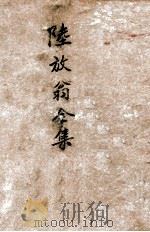 陸放翁全集